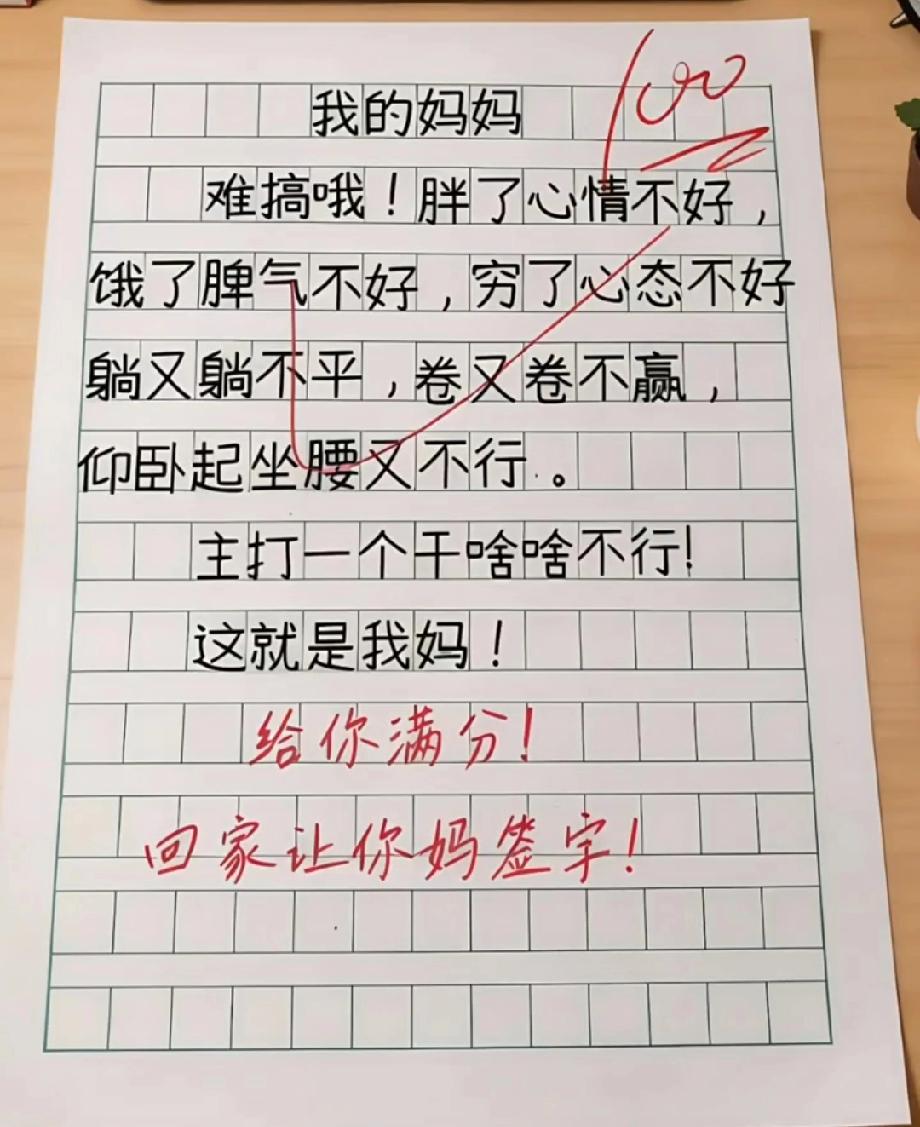 我的妈妈
100
难搞哦！胖了心情不好，
饿了脾气不好，穷了心态不好
躺又躺不平，卷又卷不赢，
仰卧起坐腰又不行。
主打一个干啥啥不行！
这就是我妈！
给你满分！
回家让你妈签字！